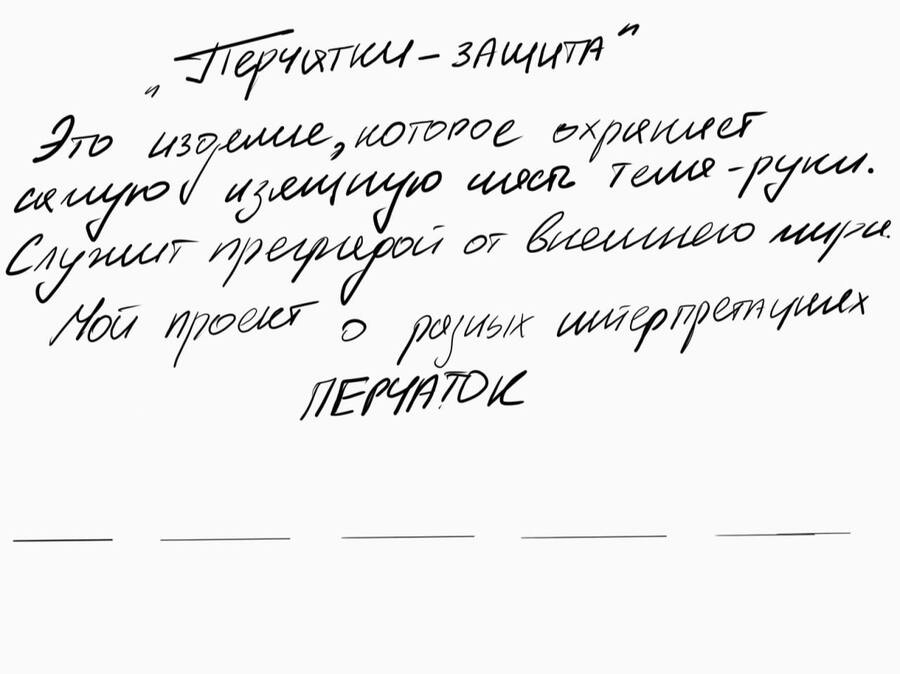 „Перчатки-защита"
Это изделие, которое охраняет
самую изящную часть тела-руки.
Служит преградой от внешнего мира.
Мой проект о разных интерпретациях
ПЕРЧАТОК